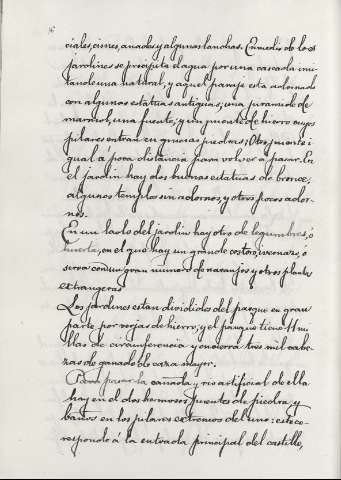 ciales, cisnes, anades y algunas lanchas. En medio de los
jardines se precipita el agua por una cascada imi-
tando una natural, y aquel paraje esta adornado
con algunas estatuas antiguas; una piramide de
marmol, una fuente, y un puente de hierro cuyos
pilares entran en gruesas piedras; Otro puente i-
gual á poca distancia para volver a pasar. En
el jardin hay dos buenas estatuas de bronce;
algunos templos sin adornos, y otros pocos ador-
nos.
En un lado del jardin hay otro de legumbres, ó
huerta, en el que hay un grande
serra con un gran numero de naranjos y otras plantas
extrangeras
Los jardines estan divididos del parque en gran
parte por verjas de hierro, y el parque tiene 11 mi-
llas de circunferencia y encierra tres mil cabe-
zas de ganado de caza mayor.
Para pasar la cañada, y rio artificial de ella
hay en el dos hermosos puentes de piedra, y
baños en los pilares extremos del uno: este co-
responde á la entrada principal del castillo,